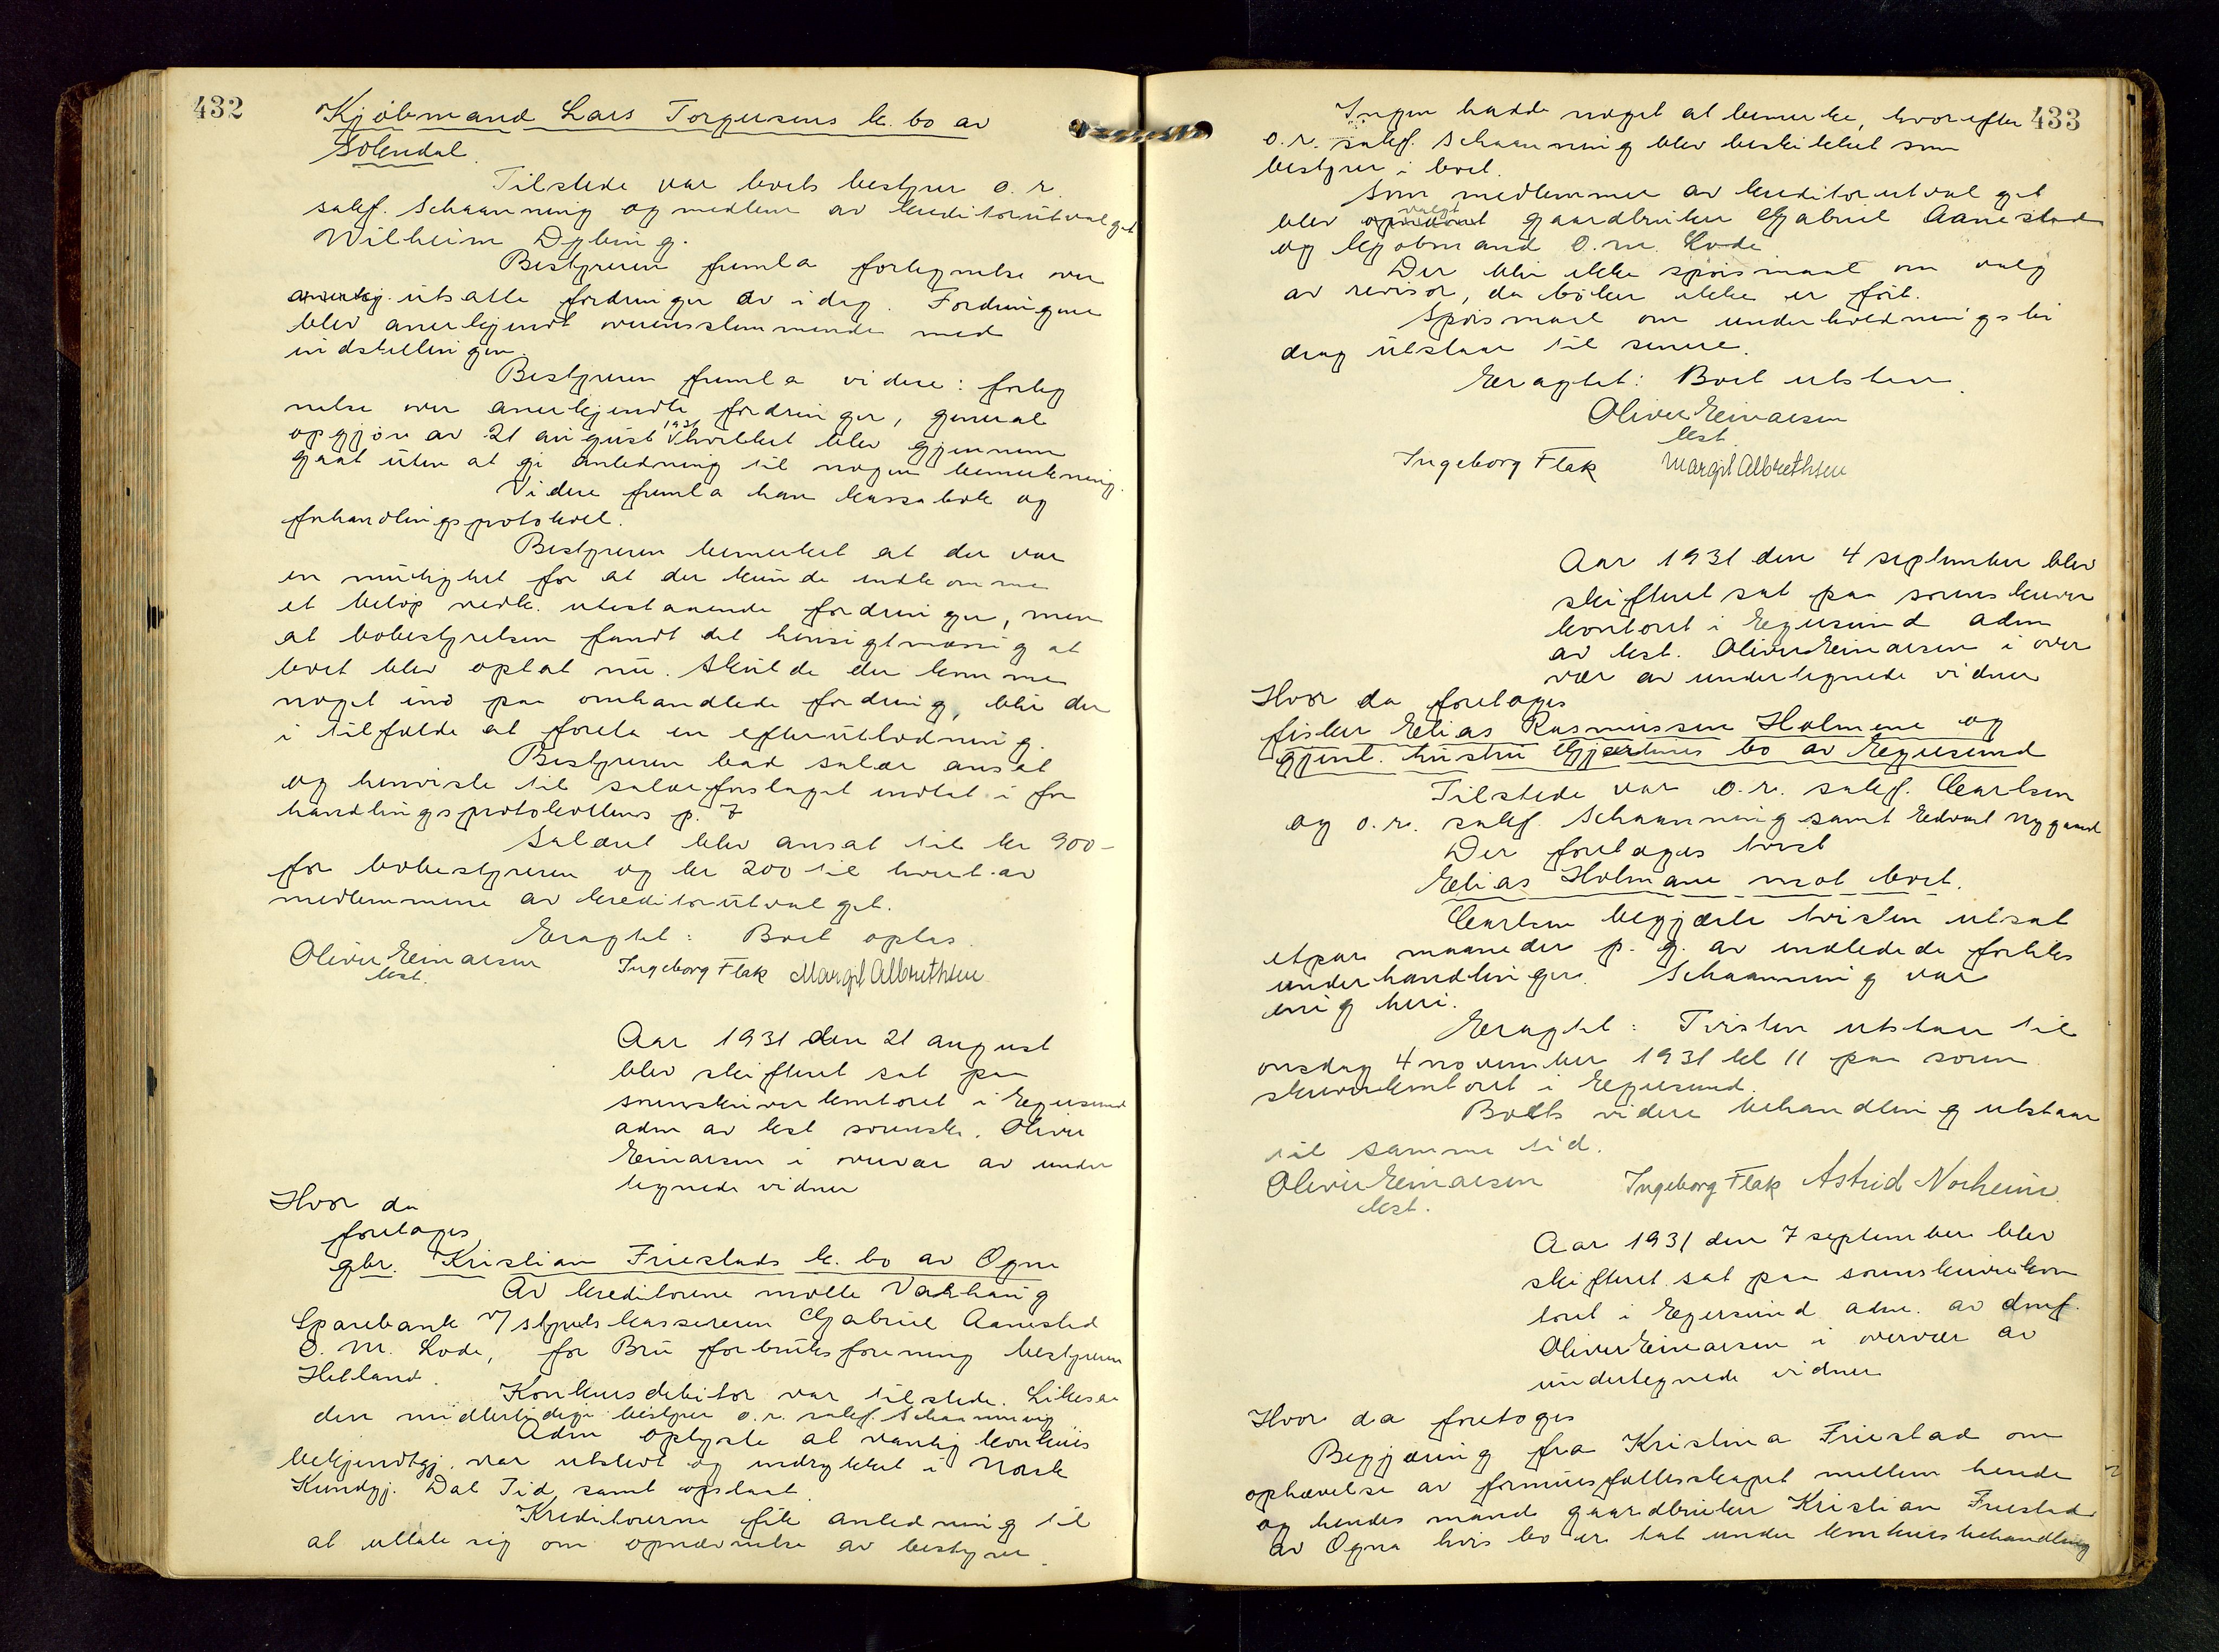 432
Kjøbmand Lars Torgersens k. bo av
Sokndal.
Tilstede var boets bestyrer o. r.
sakf. Schaanning og medlem av kreditorutvalget
Wilhelm Dybing.
Bestyreren fremla fortegnelse over
utsatte fordringer av idag. Fordringene
blev anerkjendt overensstemmende med
indstillingen.
Bestyreren fremla videre: forteg
nelse over anerkjendte fordringer, general
opgjør av 21 august 1931 hvilket blev gjennem
gaat uten at gi anledning til nogen bemerkning.
Videre fremla han kassabok og
forhandlingsprotokol.
Bestyreren bemerket at der var
en mulighet for at der kunde indkomme
et beløp vedk. utestaaende fordringer, men
at bobestyrelsen fandt det hensigtmæssig at
boet blev optat nu. Skulde der komme
noget ind paa omhandlede fordring, blir der
i tilfælde at foreta en efterutlodning.
Bestyreren bad salær ansat
og henviste til salærforslaget indtat i for
handlingsprotokollens p. 7
Salæret blev ansat til kr 900-
for bobestyreren og kr 200 til hvert av
medlemmene av kreditorutvalget.
Eragtet: Boet optas.
Oliver Einarsen
kst.
Ingeborg Flak Margit Albrethsen
Aar 1931 den 21 august
blev skifteret sat paa
sorenskriverkontoret i Egersund
adm av kst sorenskr. Oliver
Einarsen i overvær av under
tegnede vidner
Hvor da
foretoges
gbr. Kristian Friestads k. bo av Ogna
Av kreditorene møtte Varhaug
Sparebank v/styrets kassereren Gabriel Aanestad
O. M. Lode, for Bru forbruksforening bestyreren
Helland.
Konkursdebitor var tilstede. Likesaa
den midlertidige bestyrer o. r. sakf. Schaanning
Adm oplyste at vanlig konkurs
bekjendtgj. var utstedt og indrykket i Norsk
Kundgj. Dal. Tid. samt opslaat.
Kreditorerne fik anledning til
at uttale sig om opnævnelse av bestyrer.
433
Ingen hadde noget at bemerke, hvorefter
o. r. sakf. Schaanning blev beskikket som
bestyrer i boet.
Som medlemmer av kreditorutvalget
valgt
blev opnævnt gaardbruker Gabriel Aanestad
og kjøbmand O. M. Lode
Der blir ikke spørsmaal om valg
av revisor, da bøker ikke er ført.
Spørsmaal om underholdningsbi
drag utstaar til senere.
Eragtet: Boet utstaar.
Oliver Einarsen
kst.
Ingeborg Flak Margit Albrethsen
Aar 1931 den 4 september blev
skifteret sat paa sorenskriver
kontoret i Egersund adm
av kst. Oliver Einarsen i over
vær av undertegnede vidner
Hvor da foretoges
fisker Elias Rasmussen Holmene og
gjenl. hustru Gjertines bo av Egersund
Tilstede var o. r. sakf. Carlsen
og o. r. sakf. Schaanning samt Edvard Nygaard
Der foretoges tvist
Elias Holmane mot boet.
Carlsen begjærte tvisten utsat
etpar maaneder p. g. av indledede forliks
underhandlinger. Schaanning var
enig heri.
Eragtet: Tvisten utstaar til
onsdag 4 november 1931 kl 11 paa soren
skriverkontoret i Egersund.
Boets videre behandling utstaar
til samme tid.
Oliver Einarsen
kst.
Ingeborg Flak Astrid Norheim.
Aar 1931 den 7 september blev
skifteret sat paa sorenskriverkon
toret i Egersund adm. av dmf.
Oliver Einarsen i overvær av
undertegnede vidner
Hvor da foretoges
Begjæring fra Kristina Friestad om
ophævelse av formuesfællesskapet mellem hende
og hendes mand gaardbruker Kristian Friestad
av Ogna hvis bo er tat under konkursbehandling